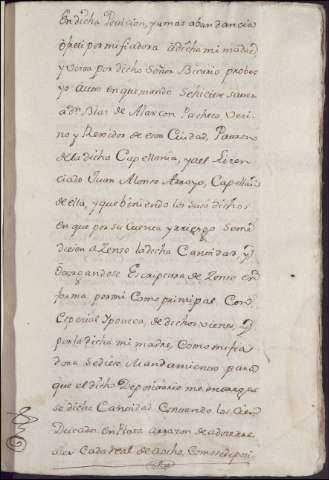 En dicha Pencion, y a mas abundancia
ofreci por mi fiadora a dicha mi madre
y visto por dicho Señor Bicario probeo
yo auto en que mando se hiciere saver
a dn Blas de Alarcon Pacheco Veci-
no y Rexidor de esta Ciudad, Patrono
de la dicha Capellania, y a el Licen
ciado Juan Alonso Arroyo, Capellan
de ella, y que biniendo los suso dichos
en que por su Cuenta y riesgo se mi
diecen a Zenso la dicha Cantidad, y
otorgandose Escriptura de Zenso en
forma por mi Como principal Con
Especial Ypoteca, de dichos vienes, y
por la dicha mi madre, Como mi fia
dora se diese Mandamiento para
que el dicho Depositario me entregas
se dicha Cantidad Contando los cien
Ducados en Plata a razon de a dos rea
les Cada real de a ocho, Como se depoci